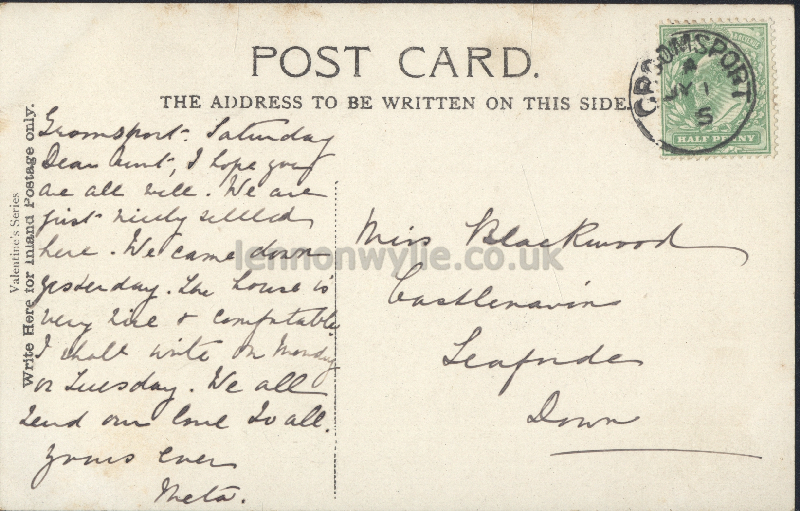 POST CARD.
THE ADDRESS TO BE WRITTEN ON THIS SIDE.
GROOMSPORT
A
JY 1
5
HALF PENNY
Valentine's Series
Write Here for Inland Postage only.
Gromsport. Saturday
Dear Aunt, I hope you
are all well. We are
just nicely settled
here. We came down
yesterday. The house is
very nice & comfortable
I shall write on Monday
or Tuesday. We all
send our love to all.
Yours ever
Meta.
Miss Blackwood
Castlenavin
Seaforde
Down
lennonwylie.co.uk